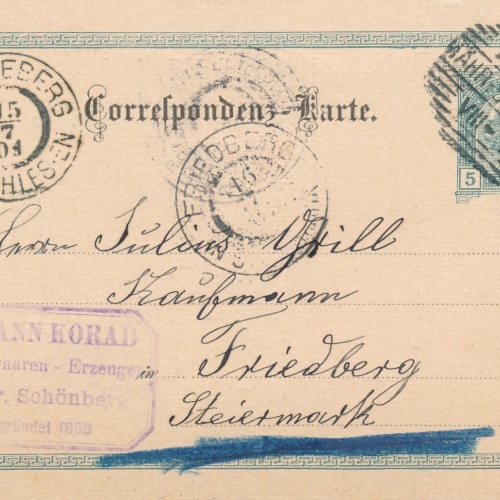 EBERG
15
7
01
HLESIEN
Correspondenz-Karte.
FRIEDBERG
5
Herrn Julius Grill
Kaufmann
in Friedberg
Steiermark
ANN KORAB
waaren - Erzeuger
r. Schönberg
gründet 1860